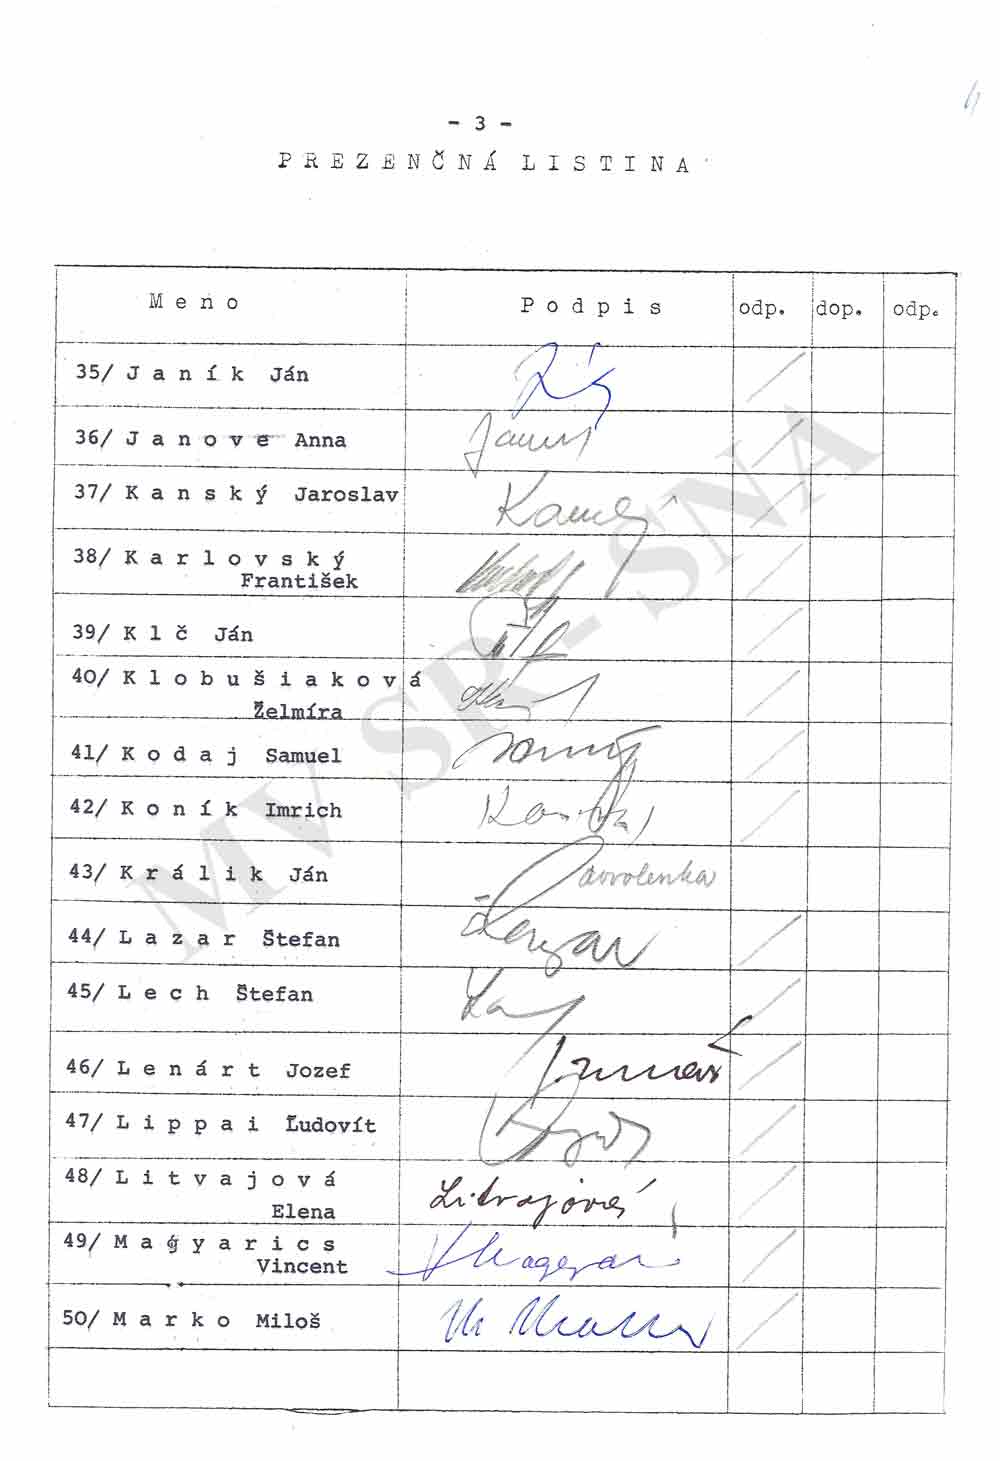 - 3 -
PREZENČNÁ LISTINA
Meno Podpis odp. dop. odp.
35/ Janík Ján
36/ Janove Anna
37/ Kanský Jaroslav
38/ Karlovský
František
39/ Klč Ján
40/ Klobušiaková
Želmíra
41/ Kodaj Samuel
42/ Koník Imrich
43/ Králik Ján dovolenka
44/ Lazar Štefan
45/ Lech Štefan
46/ Lenárt Jozef
47/ Lippai Ľudovít
48/ Litvajová
Elena Litvajová
49/ Magyarics
Vincent
50/ Marko Miloš
MV SR - SNA